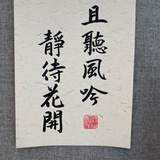 且聽風吟
靜待花開